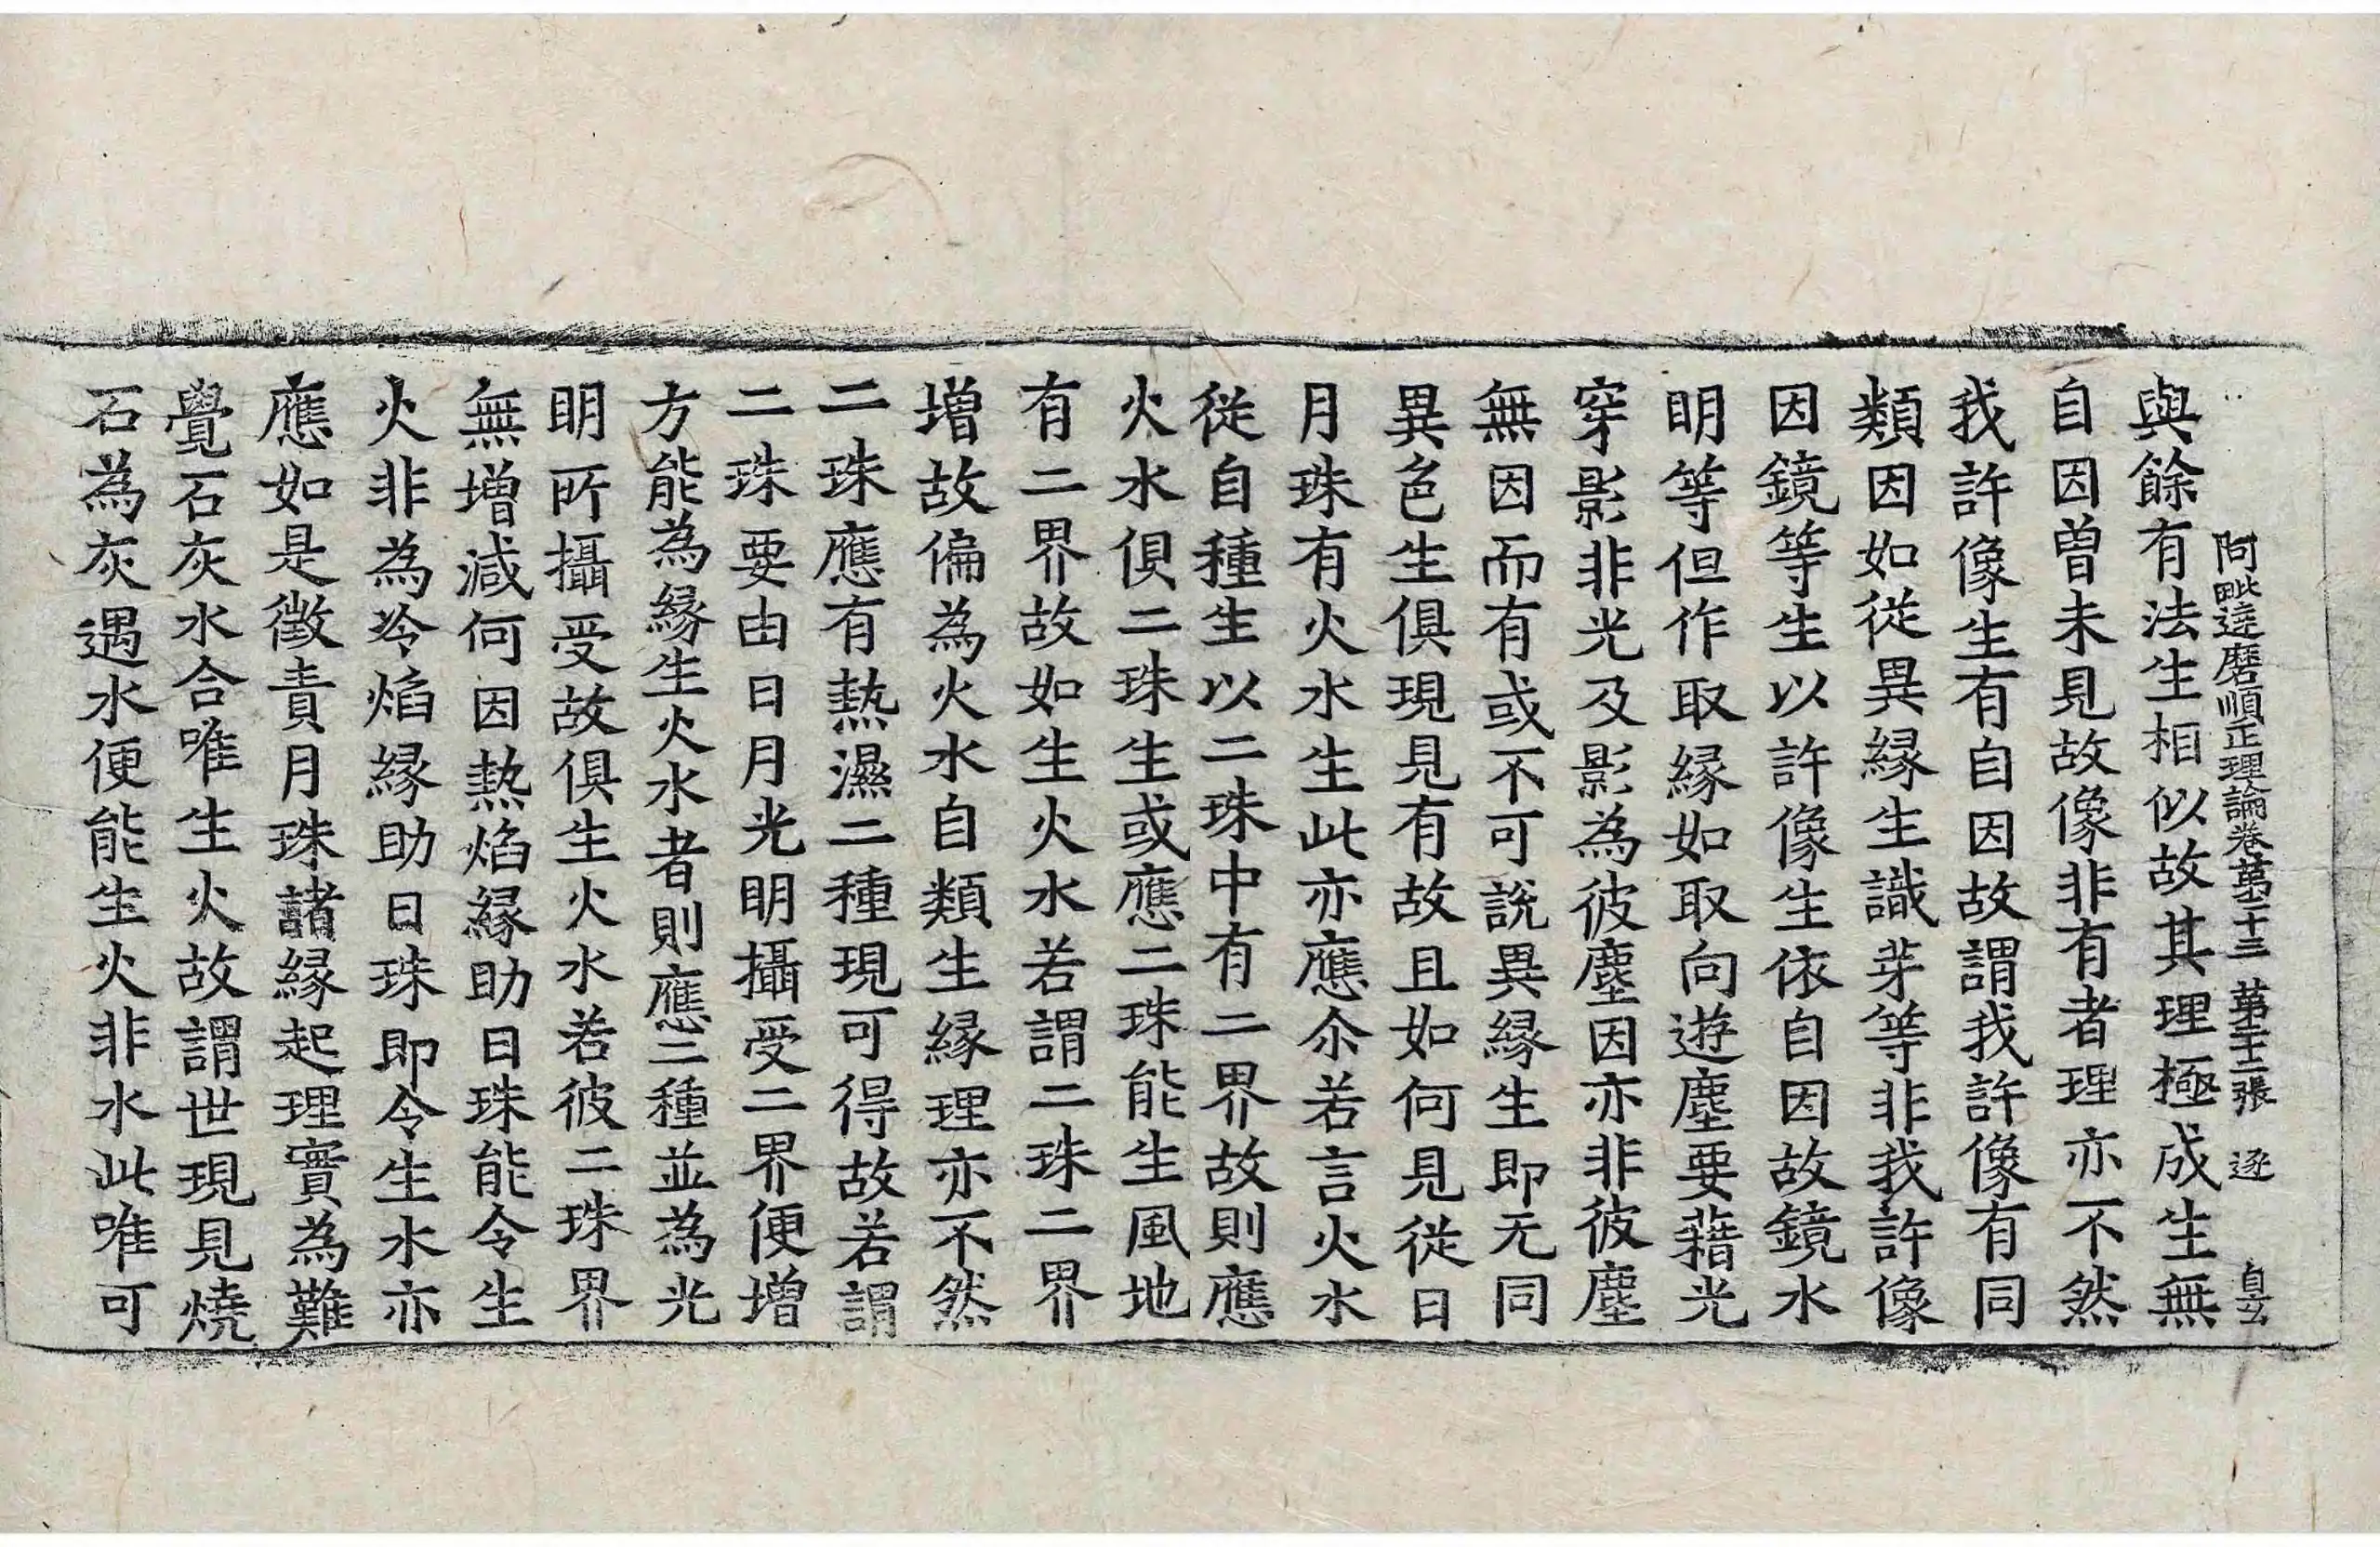 阿毗達磨順正理論卷第二十三 第二十二張 逐
與餘有法生相似故其理極成生無
自因曾未見故像非有者理亦不然
我許像生有自因故謂我許像有同
類因如從異緣生識芽等非我許像
因鏡等生以許像生依自因故鏡水
明等但作取緣如取向遊塵要藉光
穿影非光及影為彼塵因亦非彼塵
無因而有或不可說異緣生即无同
異色生俱現見有故且如何見從日
月珠有火水生此亦應尒若言火水
從自種生以二珠中有二界故則應
火水俱二珠生或應二珠能生風地
有二界故如生火水若謂二珠二界
增故偏為火水自類生緣理亦不然
二珠應有熱濕二種現可得故若謂
二珠要由日月光明攝受二界便增
方能為緣生火水者則應二種並為光
明所攝受故俱生火水若彼二珠界
無增減何因熱焰緣助日珠能令生
火非為冷焰緣助日珠即令生水亦
應如是徵責月珠諸緣起理實為難
覺石灰水合唯生火故謂世現見燒
石為灰遇水便能生火非水此唯可